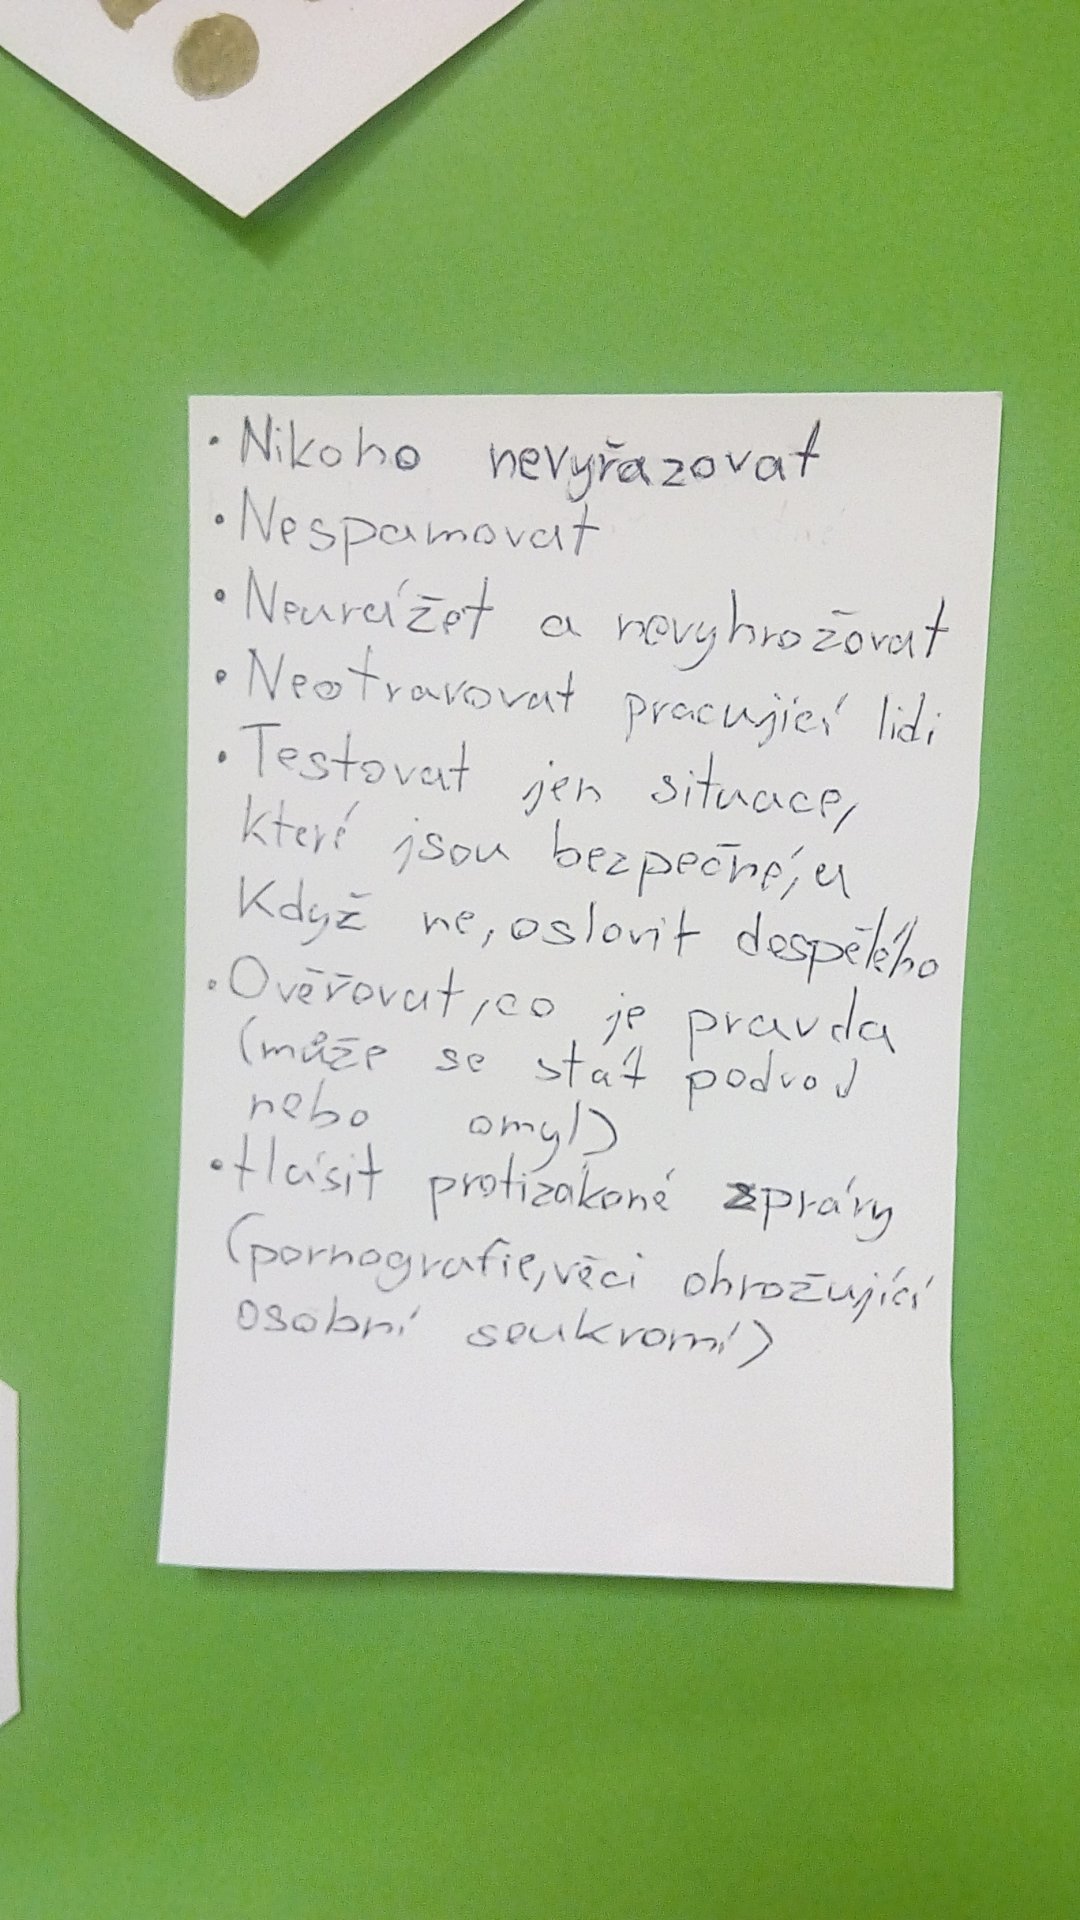 • Nikoho nevyřazovat
• Nespamovat
• Neurážet a nevyhrožovat
• Neotravovat pracující lidi
• Testovat jen situace,
které jsou bezpečné, a
Když ne, oslovit dospělého
• Ověřovat, co je pravda
(může se stát podvod
nebo omyl)
• Hlásit protizákoné zprávy
(pornografie, věci ohrožující
osobní soukromí)